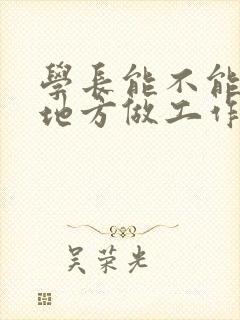 學長能不能
地方做工作
吴荣光